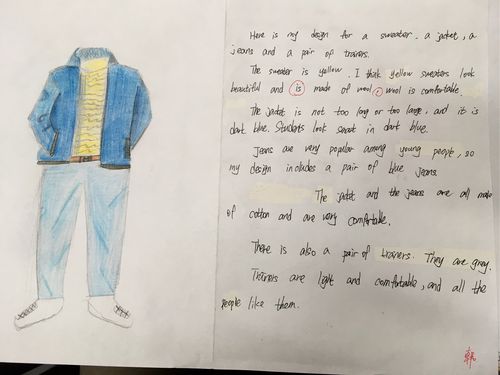 Here is my design for a sweater, a jacket, a
jeans and a pair of trainers.
The sweater is yellow. I think yellow sweaters look
beautiful and is made of wool, wool is comfortable.
The jacket is not too long or too large, and it is
dark blue. Students look smart in dark blue.
Jeans are very popular among young people, so
my design includes a pair of blue jeans.
The jacket and the jeans are all made
of cotton and are very comfortable.
There is also a pair of trainers. They are grey.
Trainers are light and comfortable, and all the
people like them.